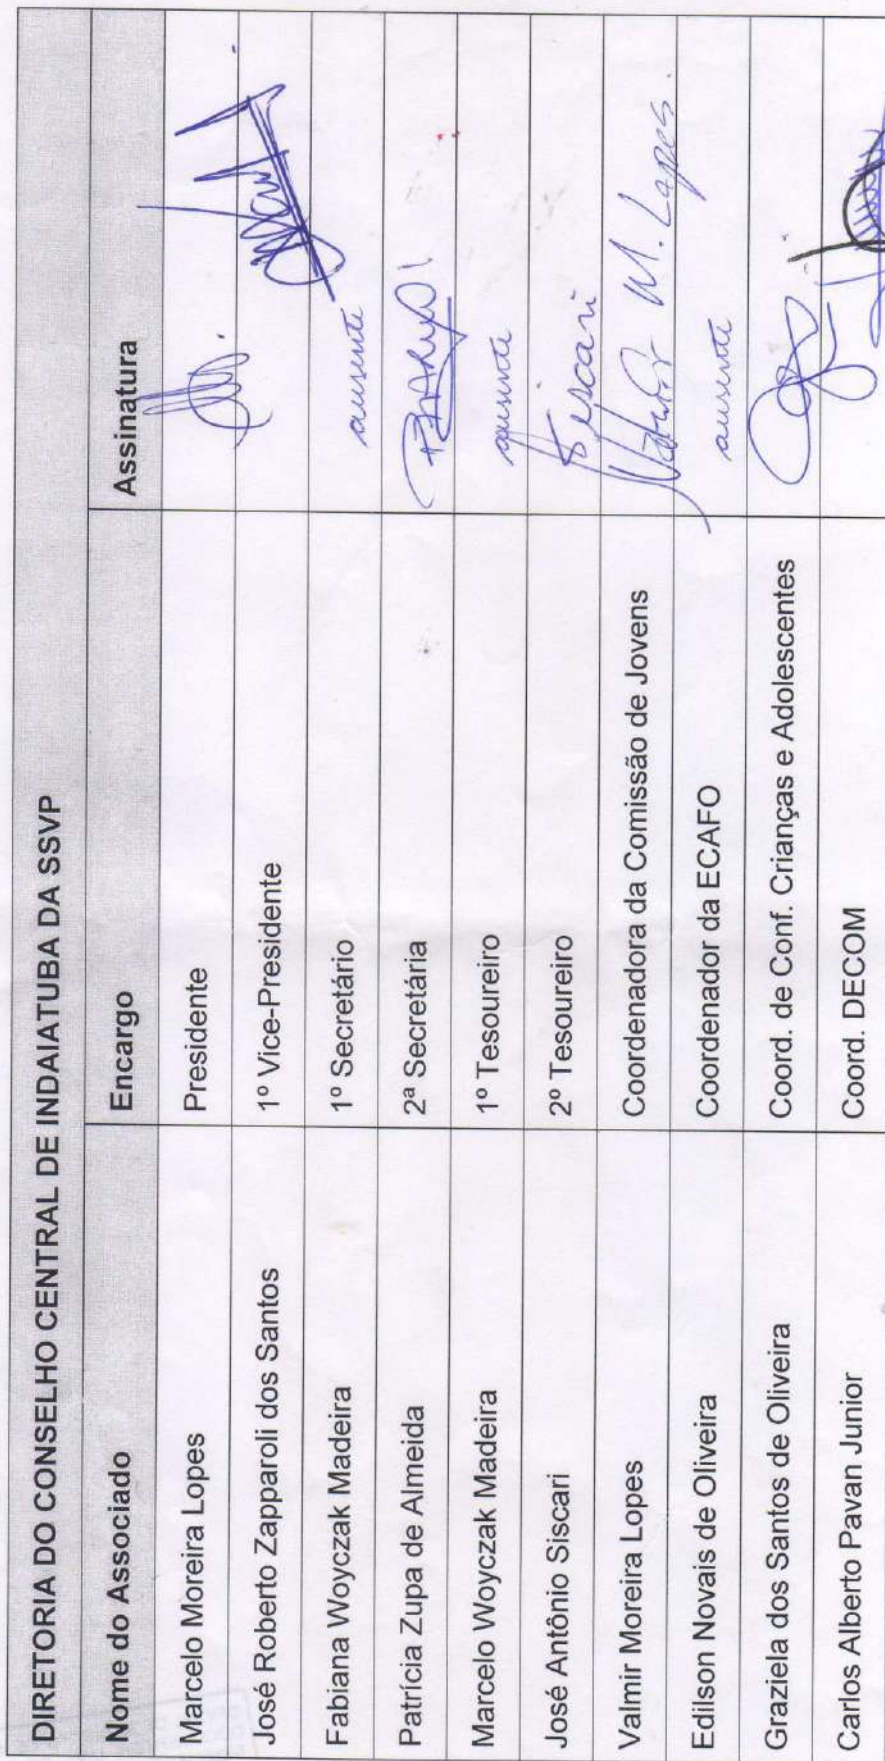 DIRETORIA DO CONSELHO CENTRAL DE INDAIATUBA DA SSVP
Nome do Associado Encargo Assinatura
Marcelo Moreira Lopes Presidente
José Roberto Zapparoli dos Santos 1º Vice-Presidente
Fabiana Woyczak Madeira 1º Secretário ausente
Patrícia Zupa de Almeida 2ª Secretária
Marcelo Woyczak Madeira 1º Tesoureiro ausente
José Antônio Siscari 2º Tesoureiro Siscari
Valmir Moreira Lopes Coordenadora da Comissão de Jovens M. Lopes
Edilson Novais de Oliveira Coordenador da ECAFO ausente
Graziela dos Santos de Oliveira Coord. de Conf. Crianças e Adolescentes
Carlos Alberto Pavan Junior Coord. DECOM